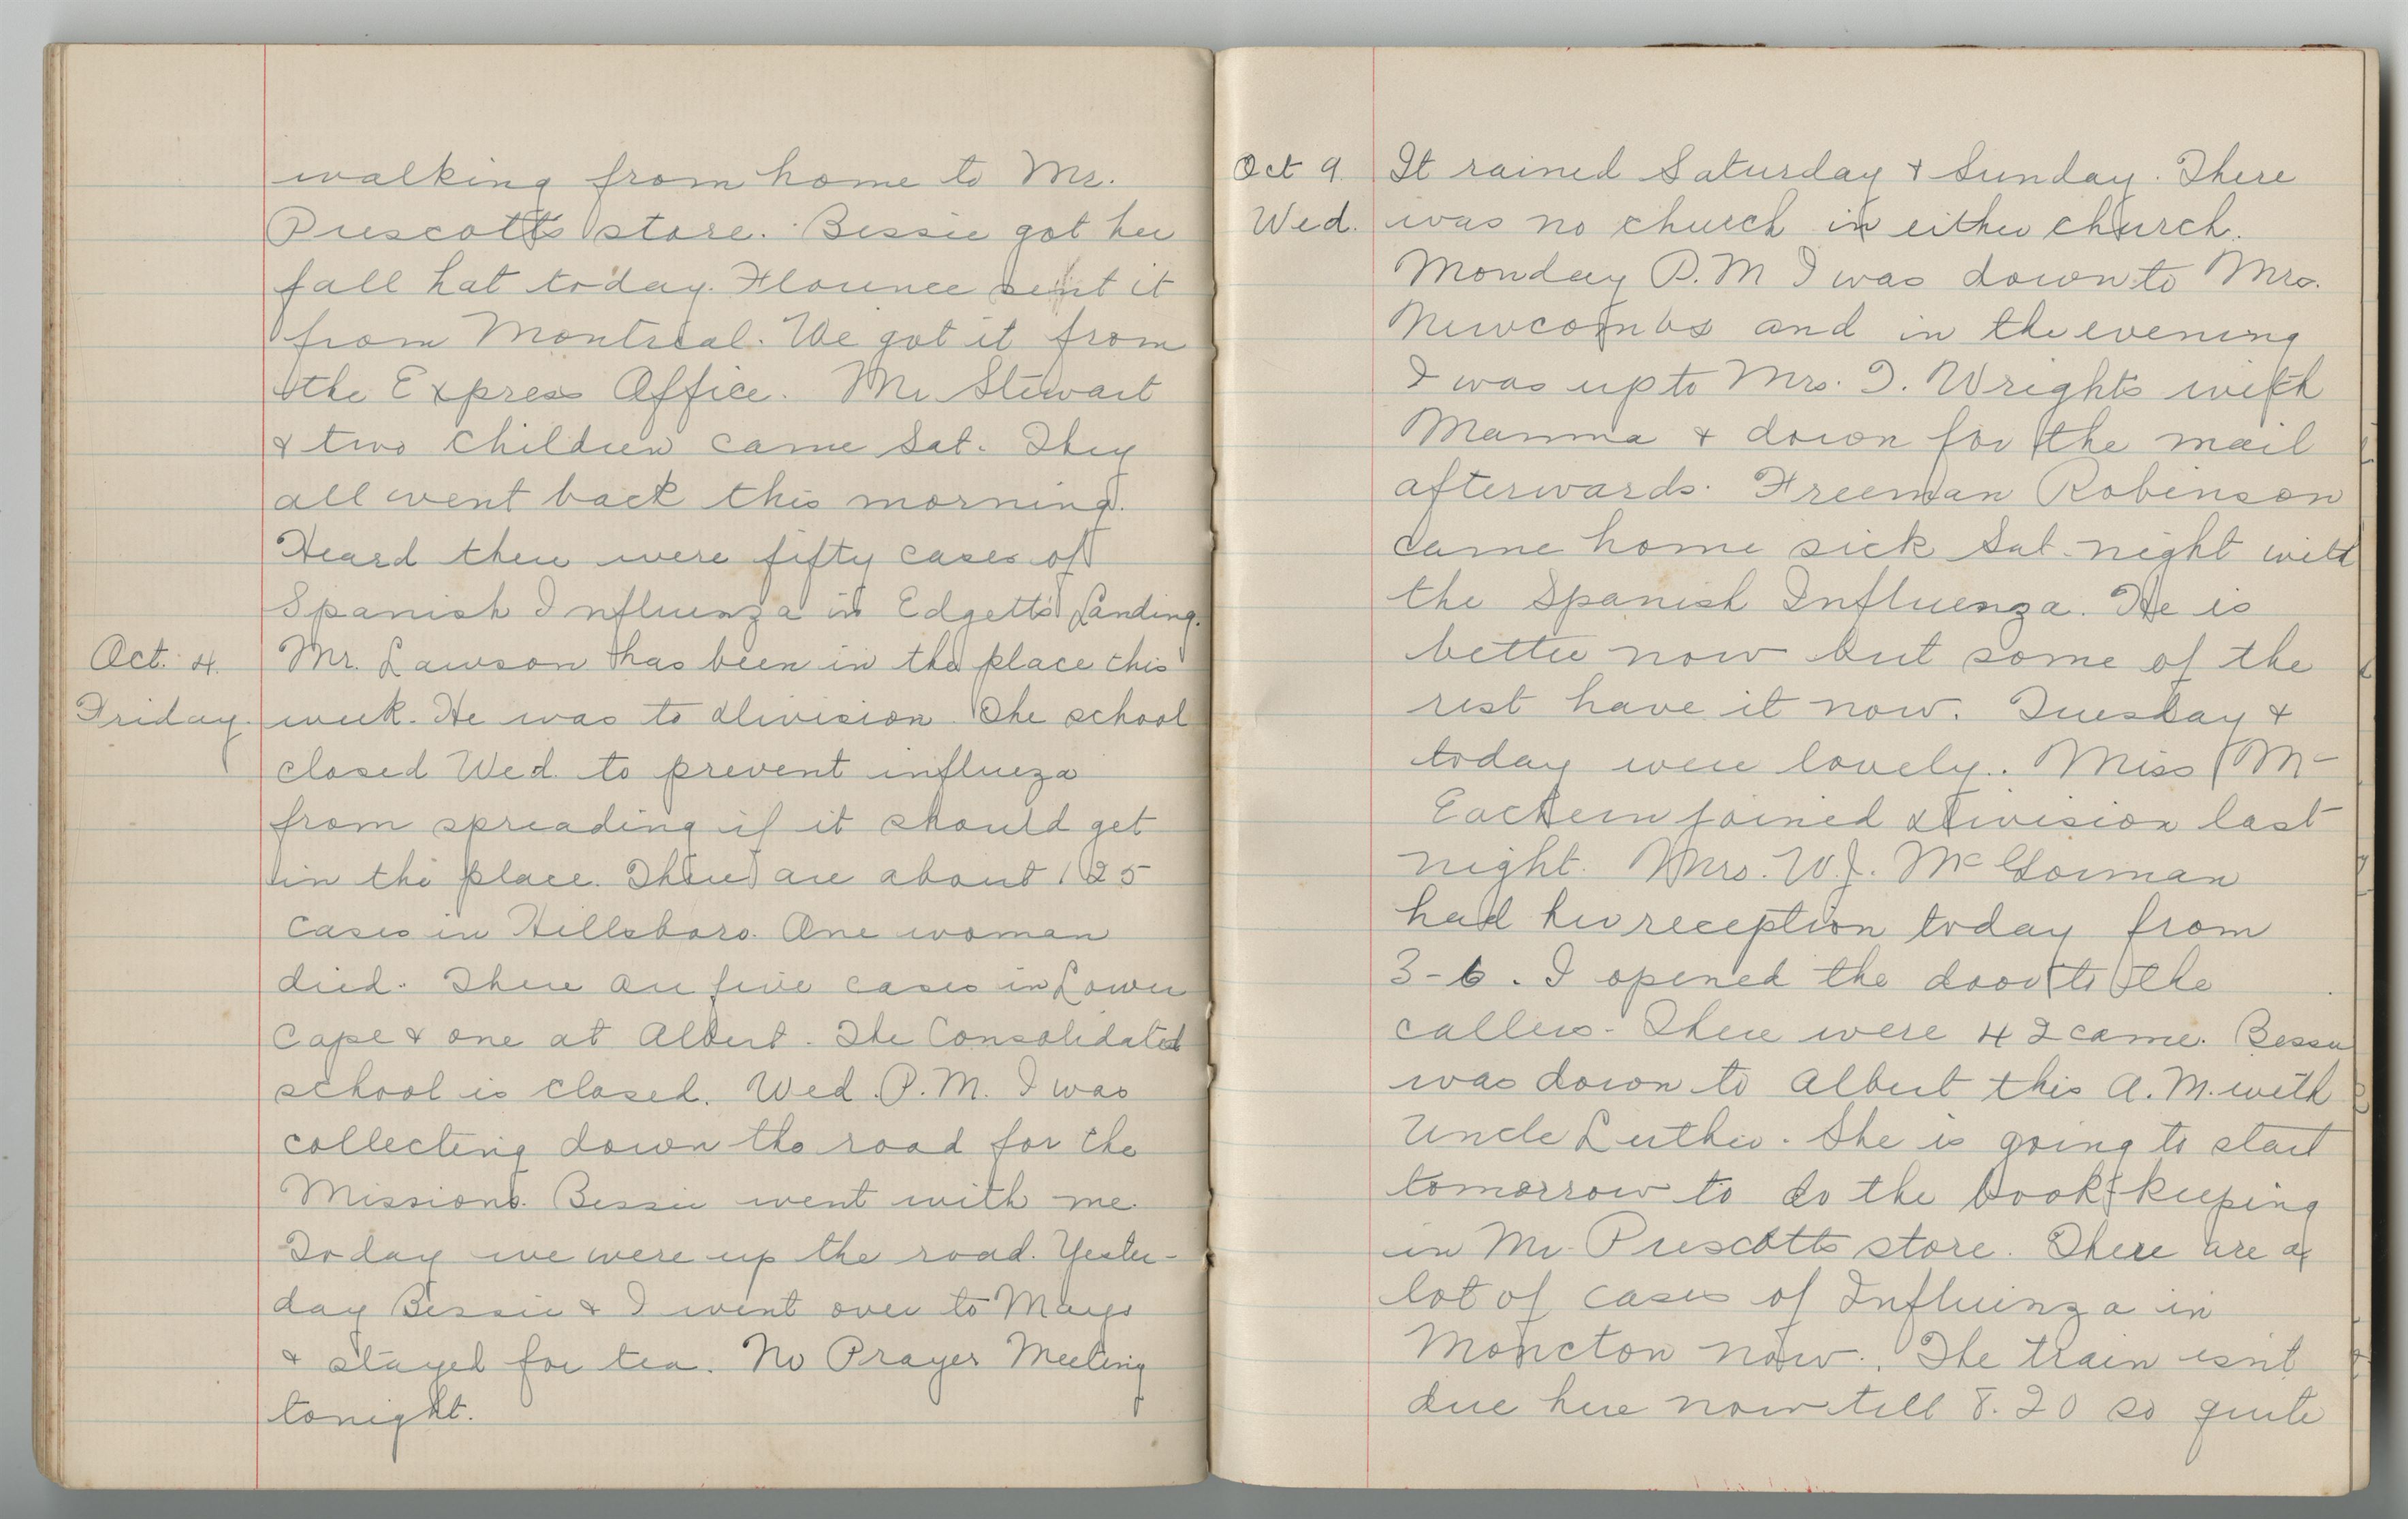 walking from home to Mr.
Prescotts store. Bessie got her
fall hat today. Florence sent it
from Montreal. We got it from
the Express Office. Mr Stewart
& two children came Sat. They
all went back this morning.
Heard there were fifty cases of
Spanish Influenza in Edgetts Landing.
Oct. 4. Mr. Lawson has been in the place this
Friday. week. He was to division. The school
closed Wed. to prevent influeza
from spreading if it should get
in the place. There are about 125
cases in Hillsboro. One woman
died. There are five cases in Lower
Cape & one at Albert. The Consolidated
school is closed. Wed. P.M. I was
collecting down the road for the
Missions. Bessie went with me.
Today we were up the road. Yester-
day Bessie & I went over to Marys
& stayed for tea. No Prayer Meeting
tonight.
Oct 9. It rained Saturday & Sunday. There
Wed. was no church in either church.
Monday P.M I was down to Mrs.
Newcombs and in the evening
I was up to Mrs. I. Wrights with
Mamma & down for the mail
afterwards. Freeman Robinson
came home sick Sat. night with
the Spanish Influenza. He is
better now but some of the
rest have it now. Tuesday &
today were lovely. Miss Mc-
Eachern joined division last
night. Mrs. W.J. McGorman
had her reception today from
3-6. I opened the door to the
callers. There were 42 came. Bessie
was down to Albert this A.M. with
Uncle Luther. She is going to start
tomorrow to do the book-keeping
in Mr. Prescotts store. There are a
lot of cases of Influenza in
Moncton now. The train isnt
due here now till 8.20 so quite